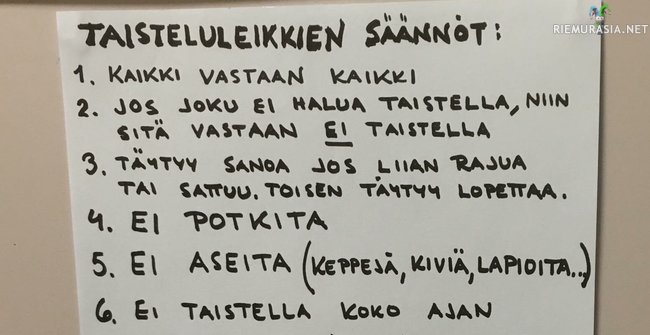 RIEMURASIA.NET
TAISTELULEIKKIEN SÄÄNNÖT:
1. KAIKKI VASTAAN KAIKKI
2. JOS JOKU EI HALUA TAISTELLA, NIIN
SITÄ VASTAAN EI TAISTELLA
3. TÄYTYY SANOA JOS LIIAN RAJUA
TAI SATTUU. TOISEN TÄYTYY LOPETTAA.
4. EI POTKITA
5. EI ASEITA (KEPPEJÄ, KIVIÄ, LAPIOITA...)
6. EI TAISTELLA KOKO AJAN